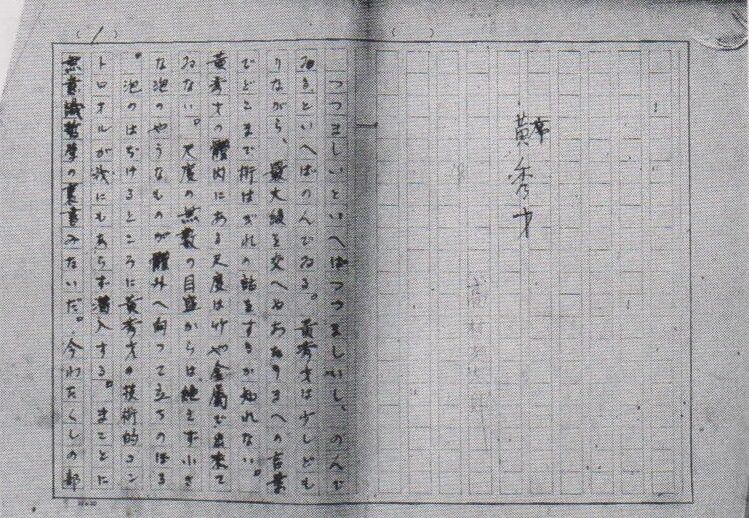 序
黃秀才
高村光太郎
(1)
つつましいといへばつつましいし、のんで
ゐるといへばのんでゐる。黃秀才は少しども
りながら、最大級を交へぬあたりまへの言葉
でどこまで桁はづれの話をするか知れない。
黃秀才の體内にある尺度は竹や金屬で出来て
ゐない。尺度の無數の目盛からは絶えず小さ
な泡のやうなものが體外へ向つて立ちのぼる
。泡のはぢけるところに黃秀才の技術的コン
トロオルが我にもあらず潜入する。まことに
無意識哲學の裏書みたいだ。今わたくしの部